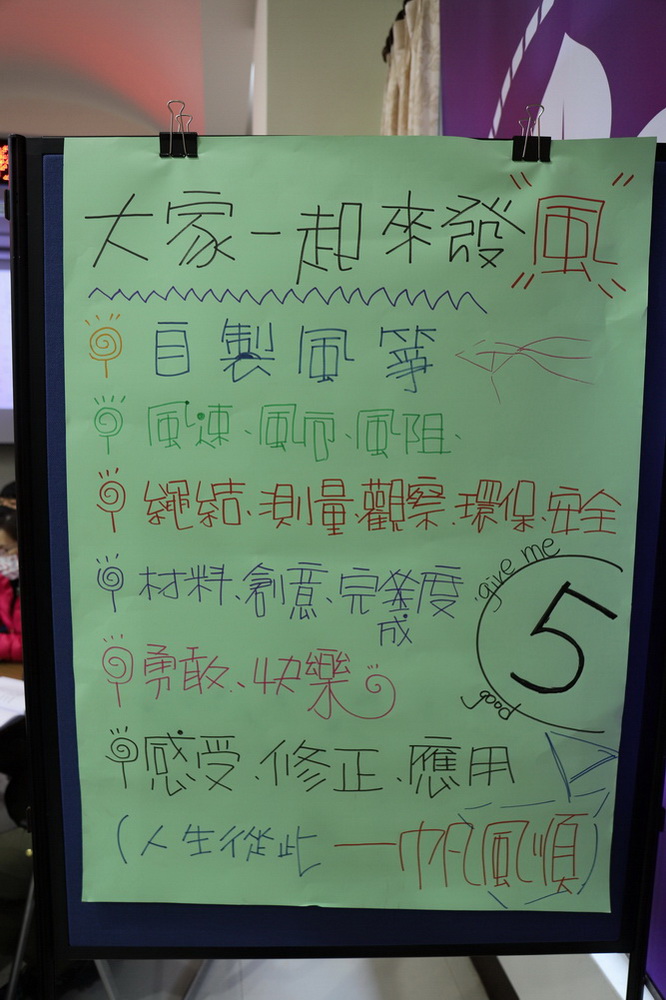 大家一起來發風
自製風箏
風速、風向、風阻、
繩結、測量、觀察、環保、安全
材料、創意、完成度
give me
5
good
勇敢、快樂
感受、修正、應用
(人生從此一帆風順)